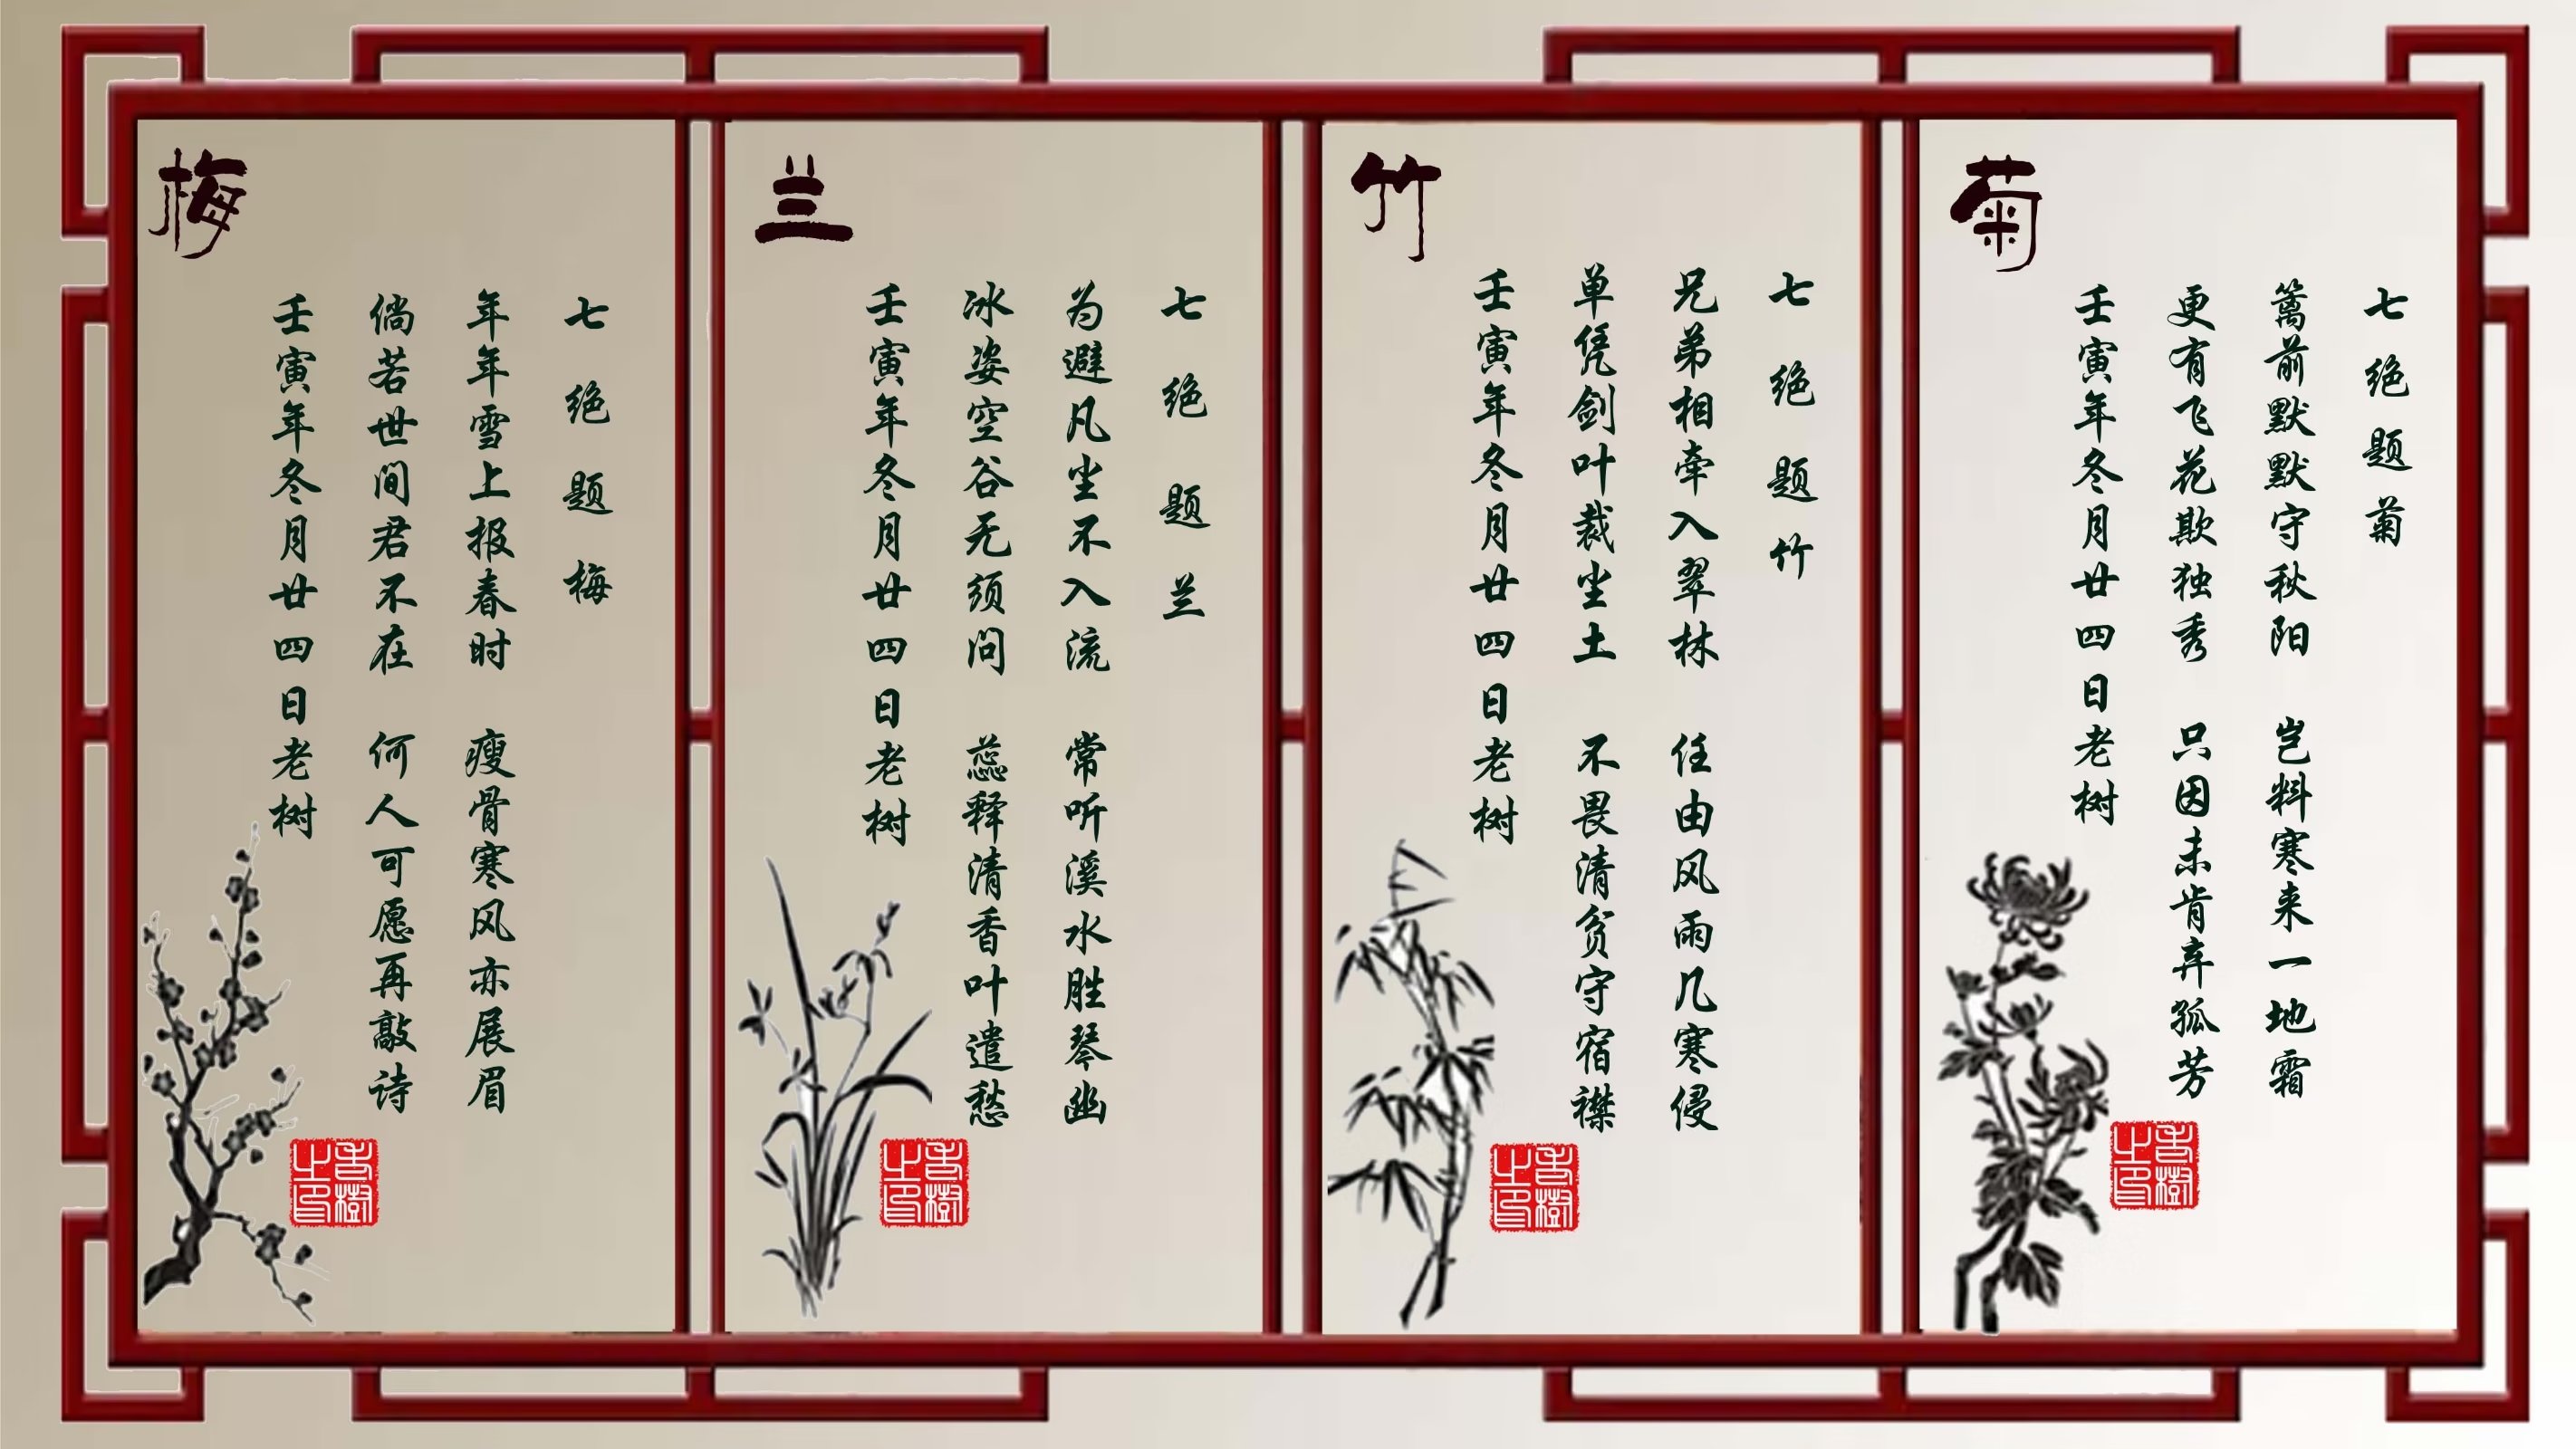 梅
七绝题梅
年年雪上报春时 瘦骨寒风亦展眉
倘若世间君不在 何人可愿再敲诗
壬寅年冬月廿四日老树
老樹之印
兰
七绝题兰
为避凡尘不入流 常听溪水胜琴幽
冰姿空谷无须问 蕊释清香叶遣愁
壬寅年冬月廿四日老树
老樹之印
竹
七绝题竹
兄弟相牵入翠林 任由风雨几寒侵
单凭剑叶裁尘土 不畏清贫守宿襟
壬寅年冬月廿四日老树
老樹之印
菊
七绝题菊
篱前默默守秋阳 岂料寒来一地霜
更有飞花欺独秀 只因未肯弃孤芳
壬寅年冬月廿四日老树
老樹之印